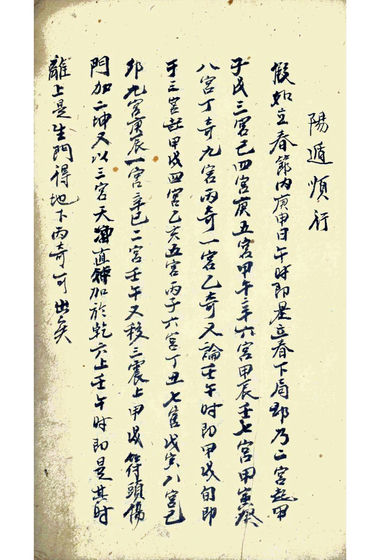 陽遁順行
假如立春節內庚申日午時即是立春下局却乃二宮起甲
子戊三宮己四宮庚五宮甲午辛六宮甲辰壬七宮甲寅癸
八宮丁奇九宮丙奇一宮乙奇又論壬午時即甲戌旬即
于三宮起甲戌四宮乙亥五宮丙子六宮丁丑七宮戊寅八宮己
卯九宮庚辰一宮辛巳二宮壬午又移三震上甲戌符頭傷
門加二坤又以三宮天直符加於乾六上壬午時即是其時
離上是生門得地下丙奇可出矣